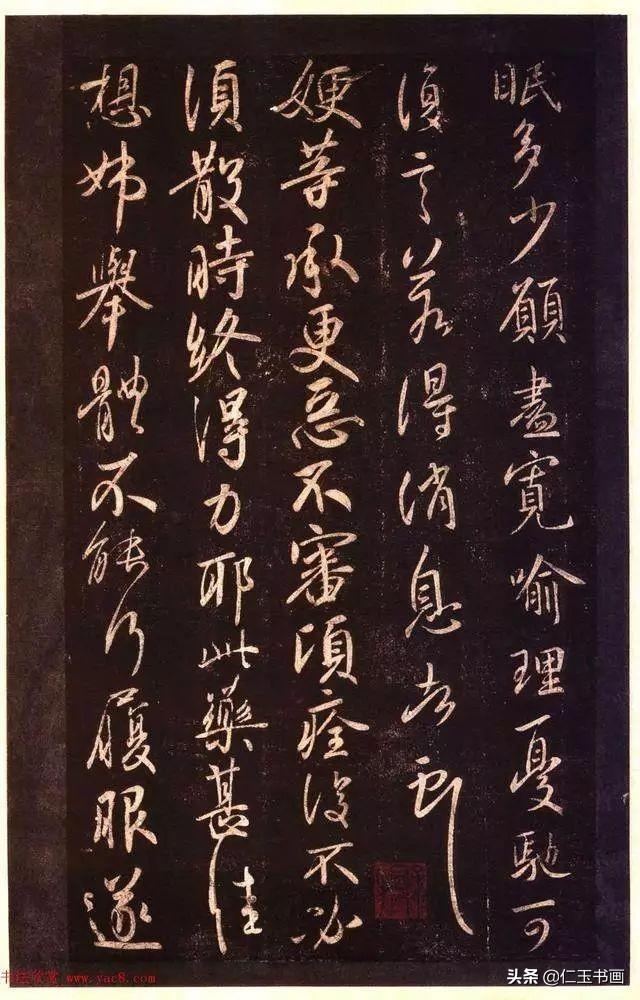 眠多少願盡寬喻理憂馳可
復言若得消息告
嫂等承更惡不審頃痊復不必
須散時終得力耶此藥甚佳
想姊舉體不能行履眼遂
书法欣赏 www.yac8.com
头条 @仁玉书画